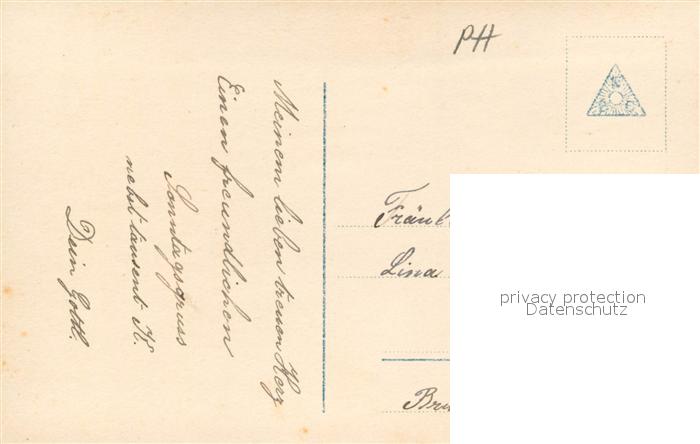 Meinem lieben treuen Herz
Einen freundlichen
Sonntagsgruss
nebst tausent K.
Dein Gotth.
PH
Fräul
Lina
Bru
privacy protection
Datenschutz